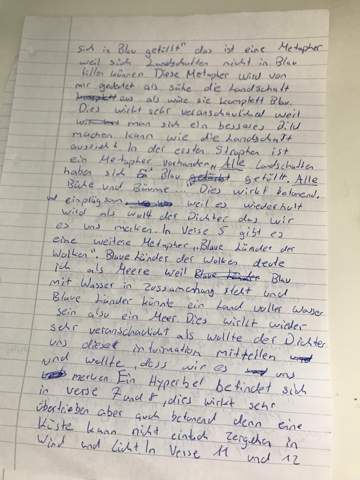 sich in Blau gefüllt" das ist eine Metapher
weil sich Landschaften nicht in Blau
füllen können Diese Metapher wird von
mir gedeutet als sähe die Landschaft
aus als wäre sie komplett Blau.
Dies wirkt sehr veranschaulichend weil
man sich ein besseres Bild
machen kann wie die Landschaft
aussieht. In der ersten Strophe ist
ein Metapher vorhanden „Alle Landschaften
haben sich Blau gefüllt. Alle
Büche und Bäume..." Dies wirkt betonend.
und einprägsam weil es wiederholt
wird als wollt der Dichter das wir
es uns merken. In Verse 5 gibt es
eine weitere Metapher „Blaue Länder der
Wolken". Blaue Länder der Wolken deute
ich als Meere weil Blau
mit Wasser in zusammenhang steht und
Blaue Länder könnte ein Land voller Wasser
sein also ein Meer. Dies wirkt wieder
sehr veranschaulicht als wollte der Dichter
uns diese information mitteilen
und wollte, dass wir es uns
merken. Ein Hyperbel befindet sich
in verse 7 und 8, dies wirkt sehr
übertrieben aber auch betonend denn eine
Küste kann nicht einfach zergehen in
Wind und Licht. In Verse 11 und 12